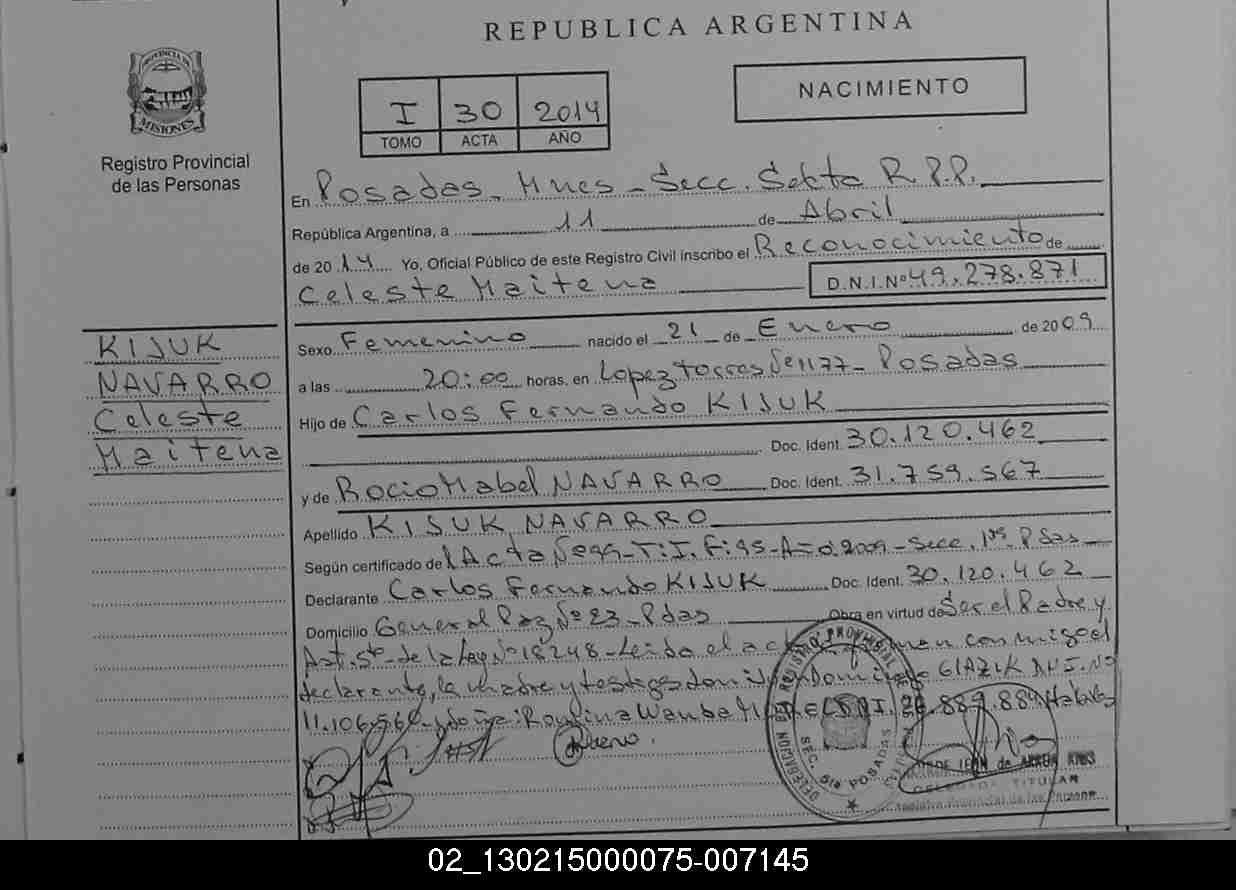 REPUBLICA ARGENTINA
PROVINCIA DE
MISIONES
Registro Provincial
de las Personas
I 30 2014
TOMO ACTA AÑO
NACIMIENTO
En Posadas - Mnes - Secc. Sexta R.P.P.
República Argentina, a 11 de Abril
de 2014 Yo, Oficial Público de este Registro Civil inscribo el Reconocimiento de
Celeste Maitena D.N.I.Nº 49.278.871
KIJUK
NAVARRO
Celeste
Maitena
Sexo Femenino nacido el 21 de Enero de 2009
a las 20:00 horas, en Lopez Torres Nº 1177 - Posadas
Hijo de Carlos Fernando KIJUK
Doc. Ident. 30.120.462
y de Rocio Mabel NAVARRO Doc. Ident. 31.759.567
Apellido KIJUK NAVARRO
Según certificado de Acta - T: I. F: - Año 2009 - Secc. 1ra. Pdas
Declarante Carlos Fernando KIJUK Doc. Ident. 30.120.462
Domicilio General Paz Nº 23 - Pdas Obra en virtud de Ser el Padre y
Art. 5to - de la Ley Nº 18248 - Leida el acta conmigo el
declarante, la madre y testigos don D.N.I. Nº
11.106. - doña: Romina Wanda
DELEGACION REGISTRO PROVINCIAL
SEC. 6ta POSADAS
DELEGADA TITULAR
Registro Provincial de las Personas
02_130215000075-007145